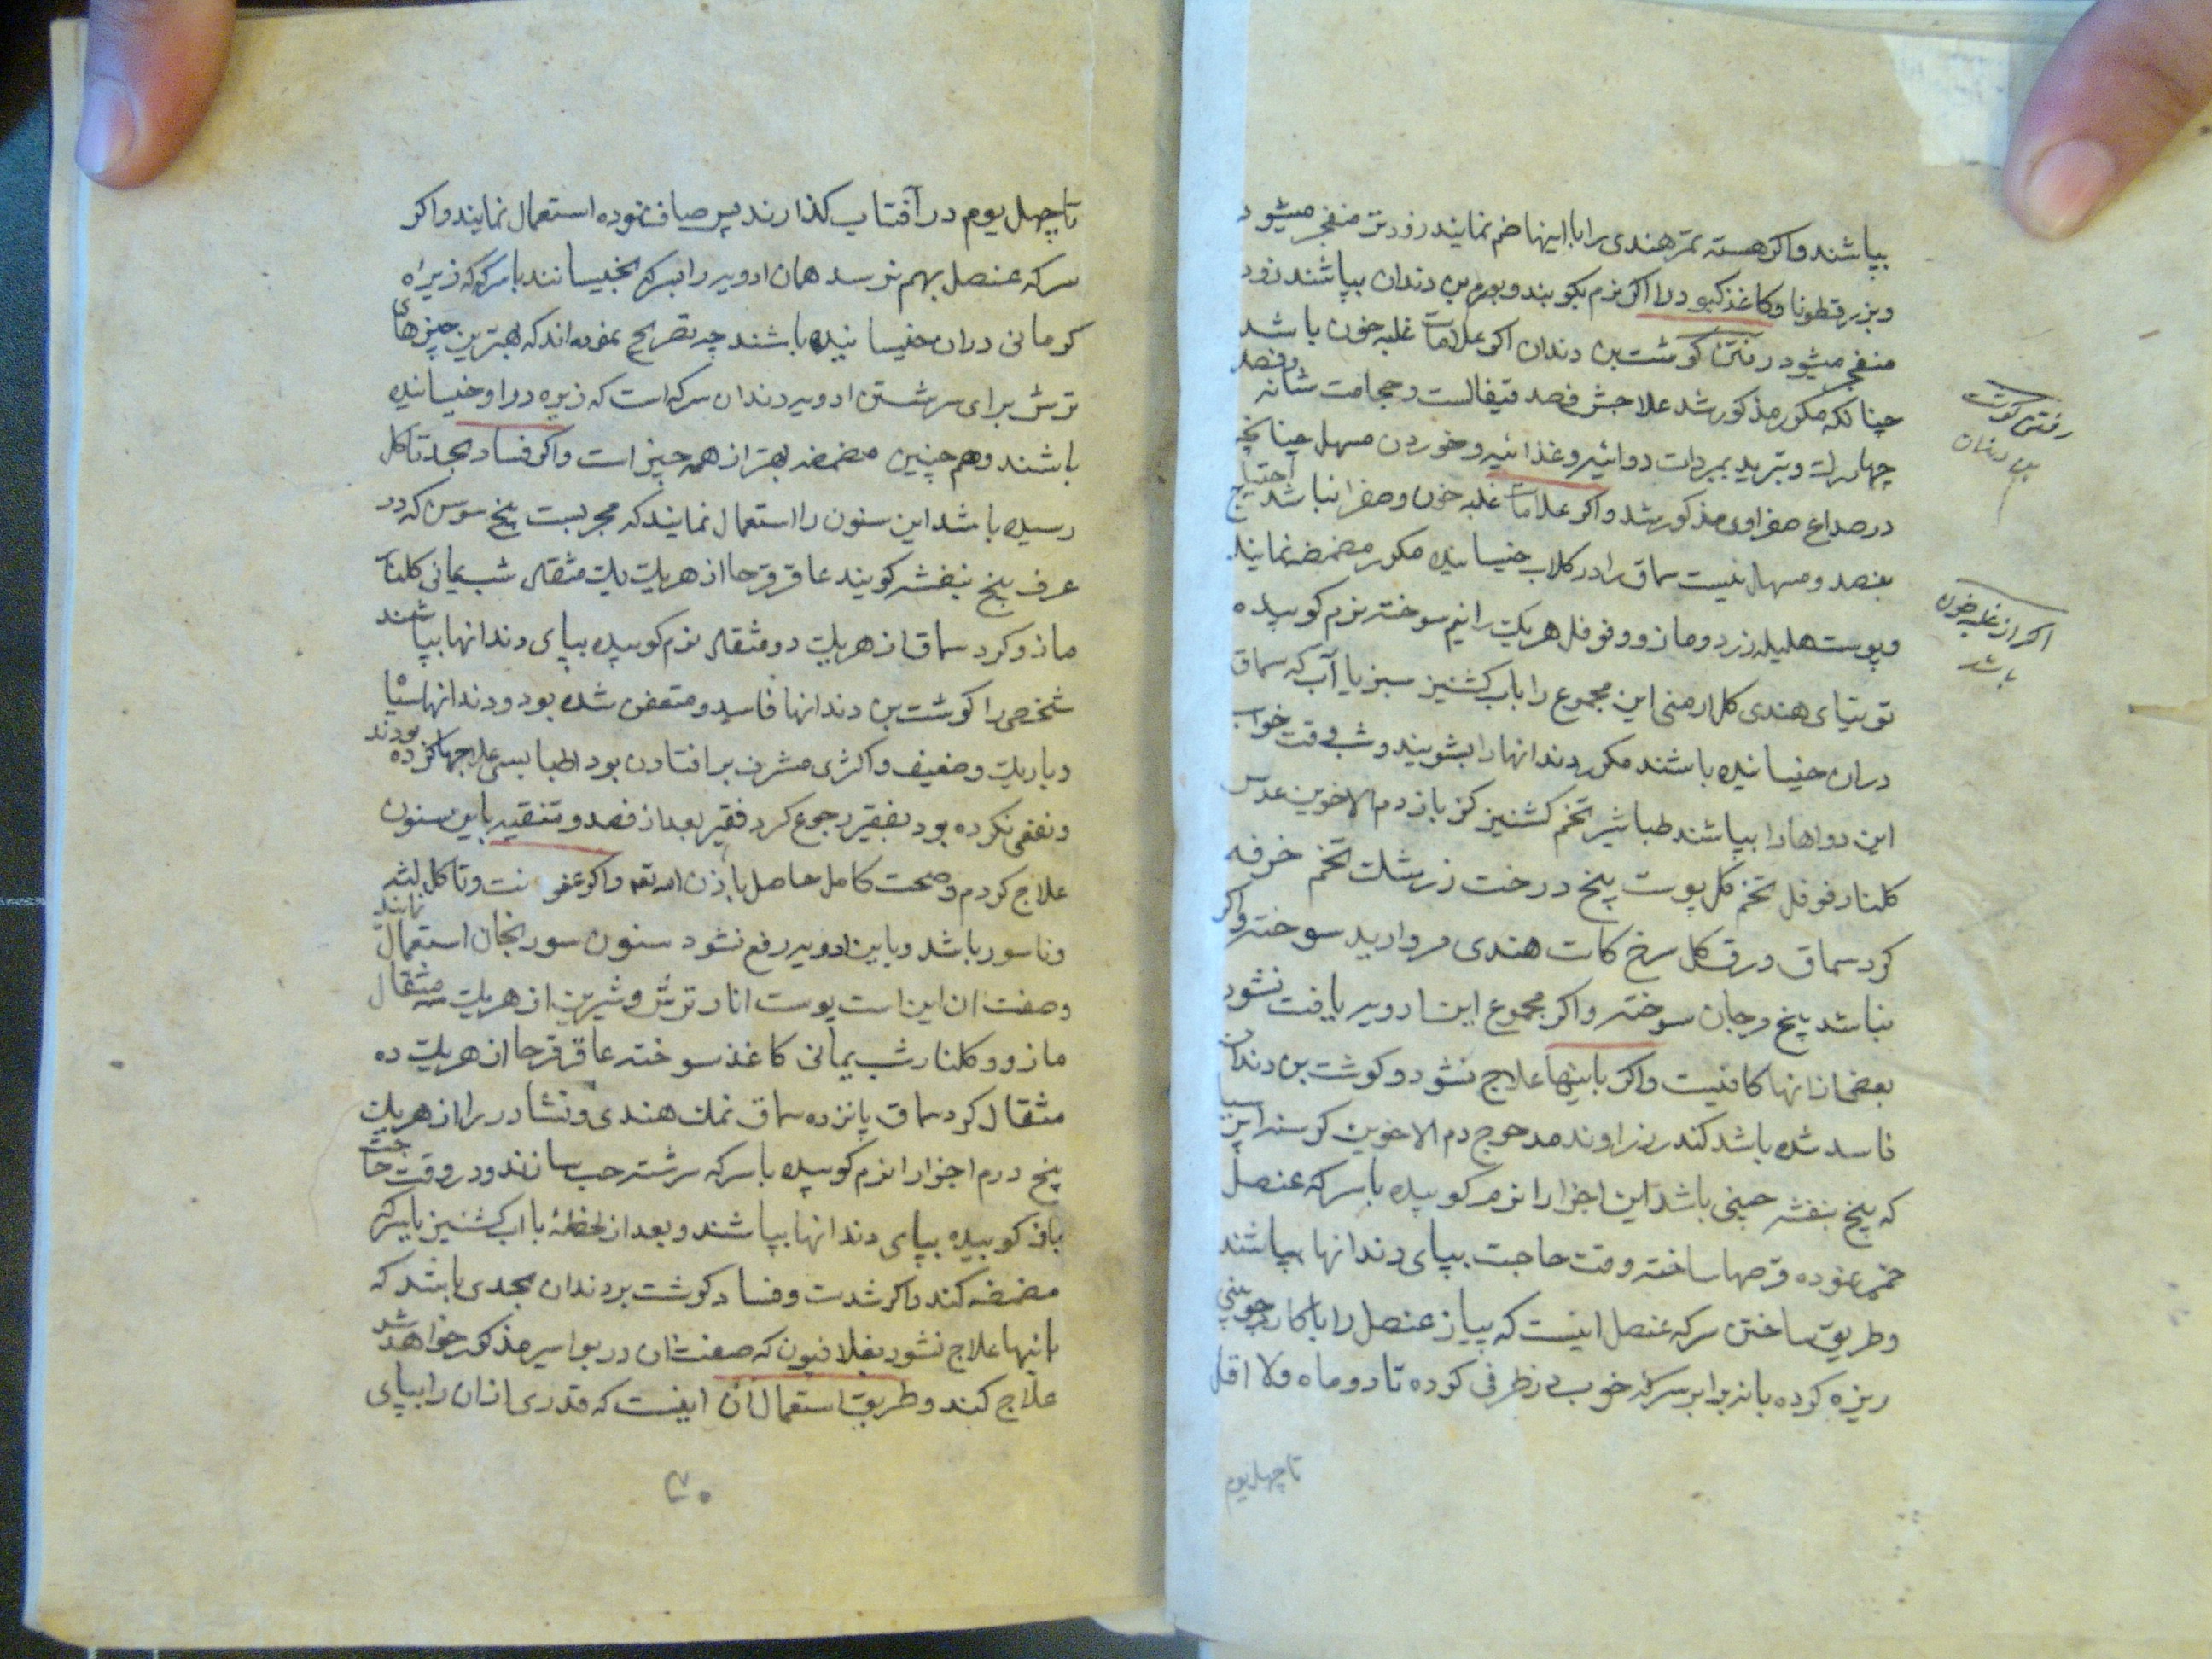 بپاشند و اکر هسته تمر هندی را با اینها ضم نمایند زودتر منفجر میشود
و بزر قطونا و کاغذ کبود را اکر نرم بکوبند و بورم بن دندان بپاشند زود
منفجر میشود رفتن کوشت بن دندان اکر علامات غلبه خون باشد
چنانکه مکرر مذکور شد علاجش فصد قیفالست و حجامت شانه و فصد
چهار رك و تبرید بمبردات دوائیه و غذائیه و خوردن مسهل چنانچه
در صداع صفراوی مذکور شد و اکر علامات غلبه خون و صفرا نباشد احتیاج
بفصد و مسهل نیست سماق را در کلاب خیسانیده مکرر مضمضه نمایند
و پوست هلیله زرد و مازو و فوفل هریك را نیم سوخته نرم کوبیده
توتیای هندی کل ارمنی این مجموع را باب کشنیز سبز یا آب که سماق
دران خیسانیده باشند مکرر دندانها را بشویند و شب وقت خواب
این دواها را بپاشند طباشیر تخم کشنیز کزبازد دم الاخوین عدس
کلنار فوفل تخم کل پوست بیخ درخت زرشك تخم خرفه
کرد سماق ورق کل سرخ کات هندی مروارید سوخته و اکر
نباشد بیخ مرجان سوخته و اکر مجموع این ادویه یافت نشود
بعضی از انها کافیست و اکر باینها علاج نشود و کوشت بن دندان
فاسد شده باشد کندر زراوند مدحرج دم الاخوین کرسنه ایرسا
که بیخ بنفشه چینی باشد این اجزا را نرم کوبیده با سرکه عنصل
خمیر نموده قرصها ساخته وقت حاجت بپای دندانها بپاشند
و طریق ساختن سرکه عنصل اینست که پیاز عنصل را با کارد چوبینی
ریزه کرده بانه برابر سرکه خوب در ظرفی کرده تا دو ماه و لا اقل
تا چهل یوم
رفتن کوشت
بن دندان
اکر از غلبه خون
باشد
تا چهل یوم در آفتاب کذارند پس صاف نموده استعمال نمایند و اکر
سرکه عنصل بهم نرسد همان ادویه را بسرکه بخیسانند با سرکه که زیره
کرمانی دران خیسانیده باشند چه تصریح نموده اند که بهترین چیزهای
ترش برای سرشتن ادویه دندان سرکه است که زیره در او خیسانیده
باشند و هم چنین مضمضه بهتر از همه چیز است و اکر فساد بحد تاکل
رسیده باشد این سنون را استعمال نمایند که مجربست بیخ سوسن که در
عرف بیخ بنفشه کویند عاقرقرحا از هریك یك مثقال شب یمانی کلنار
مازو کرد سماق از هریك دو مثقال نرم کوبیده بپای دندانها بپاشند
شخصی را کوشت بن دندانها فاسد و متعفن شده بود و دندانها سیاه
و باریك و ضعیف و اکثری مشرف بر افتادن بود اطبا بسی علاجها کرده بودند
و نفعی نکرده بود بفقیر رجوع کرد فقیر بعد از فصد و تنقیه باین سنون
علاج کردم و صحت کامل حاصل باذن الله تعه و اکر عفونت و تاکل لثه
و ناسور باشد و باین ادویه رفع نشود سنون سورنجان استعمال نمایند
و صفت ان این است پوست انار ترش و شیرین از هریك سه مثقال
مازو و کلنار شب یمانی کاغذ سوخته عاقرقرحا از هریك ده
مثقال کرد سماق پانزده سماق نمك هندی و نشادر را از هریك
پنج درم اجزا را نرم کوبیده با سرکه سرشته حب سازند و در وقت حاجت
باز کوبیده بپای دندانها بپاشند و بعد از لحظهٔ با اب کشنیز یا سرکه
مضمضه کند و اکر شدت و فساد کوشت بر دندان بحدی باشد که
باینها علاج نشود بفلافیون که صفت ان در بواسیر مذکور خواهد شد
علاج کند و طریق استعمال آن اینست که قدری از ان را بپای